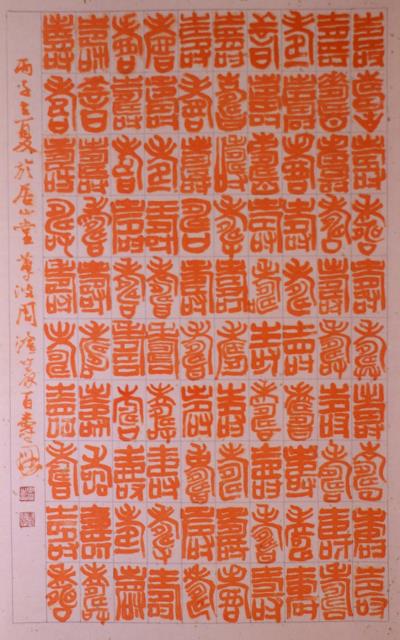 壽壽壽壽壽壽壽壽壽壽
壽壽壽壽壽壽壽壽壽壽
壽壽壽壽壽壽壽壽壽壽
壽壽壽壽壽壽壽壽壽壽
壽壽壽壽壽壽壽壽壽壽
壽壽壽壽壽壽壽壽壽壽
壽壽壽壽壽壽壽壽壽壽
壽壽壽壽壽壽壽壽壽壽
壽壽壽壽壽壽壽壽壽壽
壽壽壽壽壽壽壽壽壽壽
丙子之夏於山堂周百壽